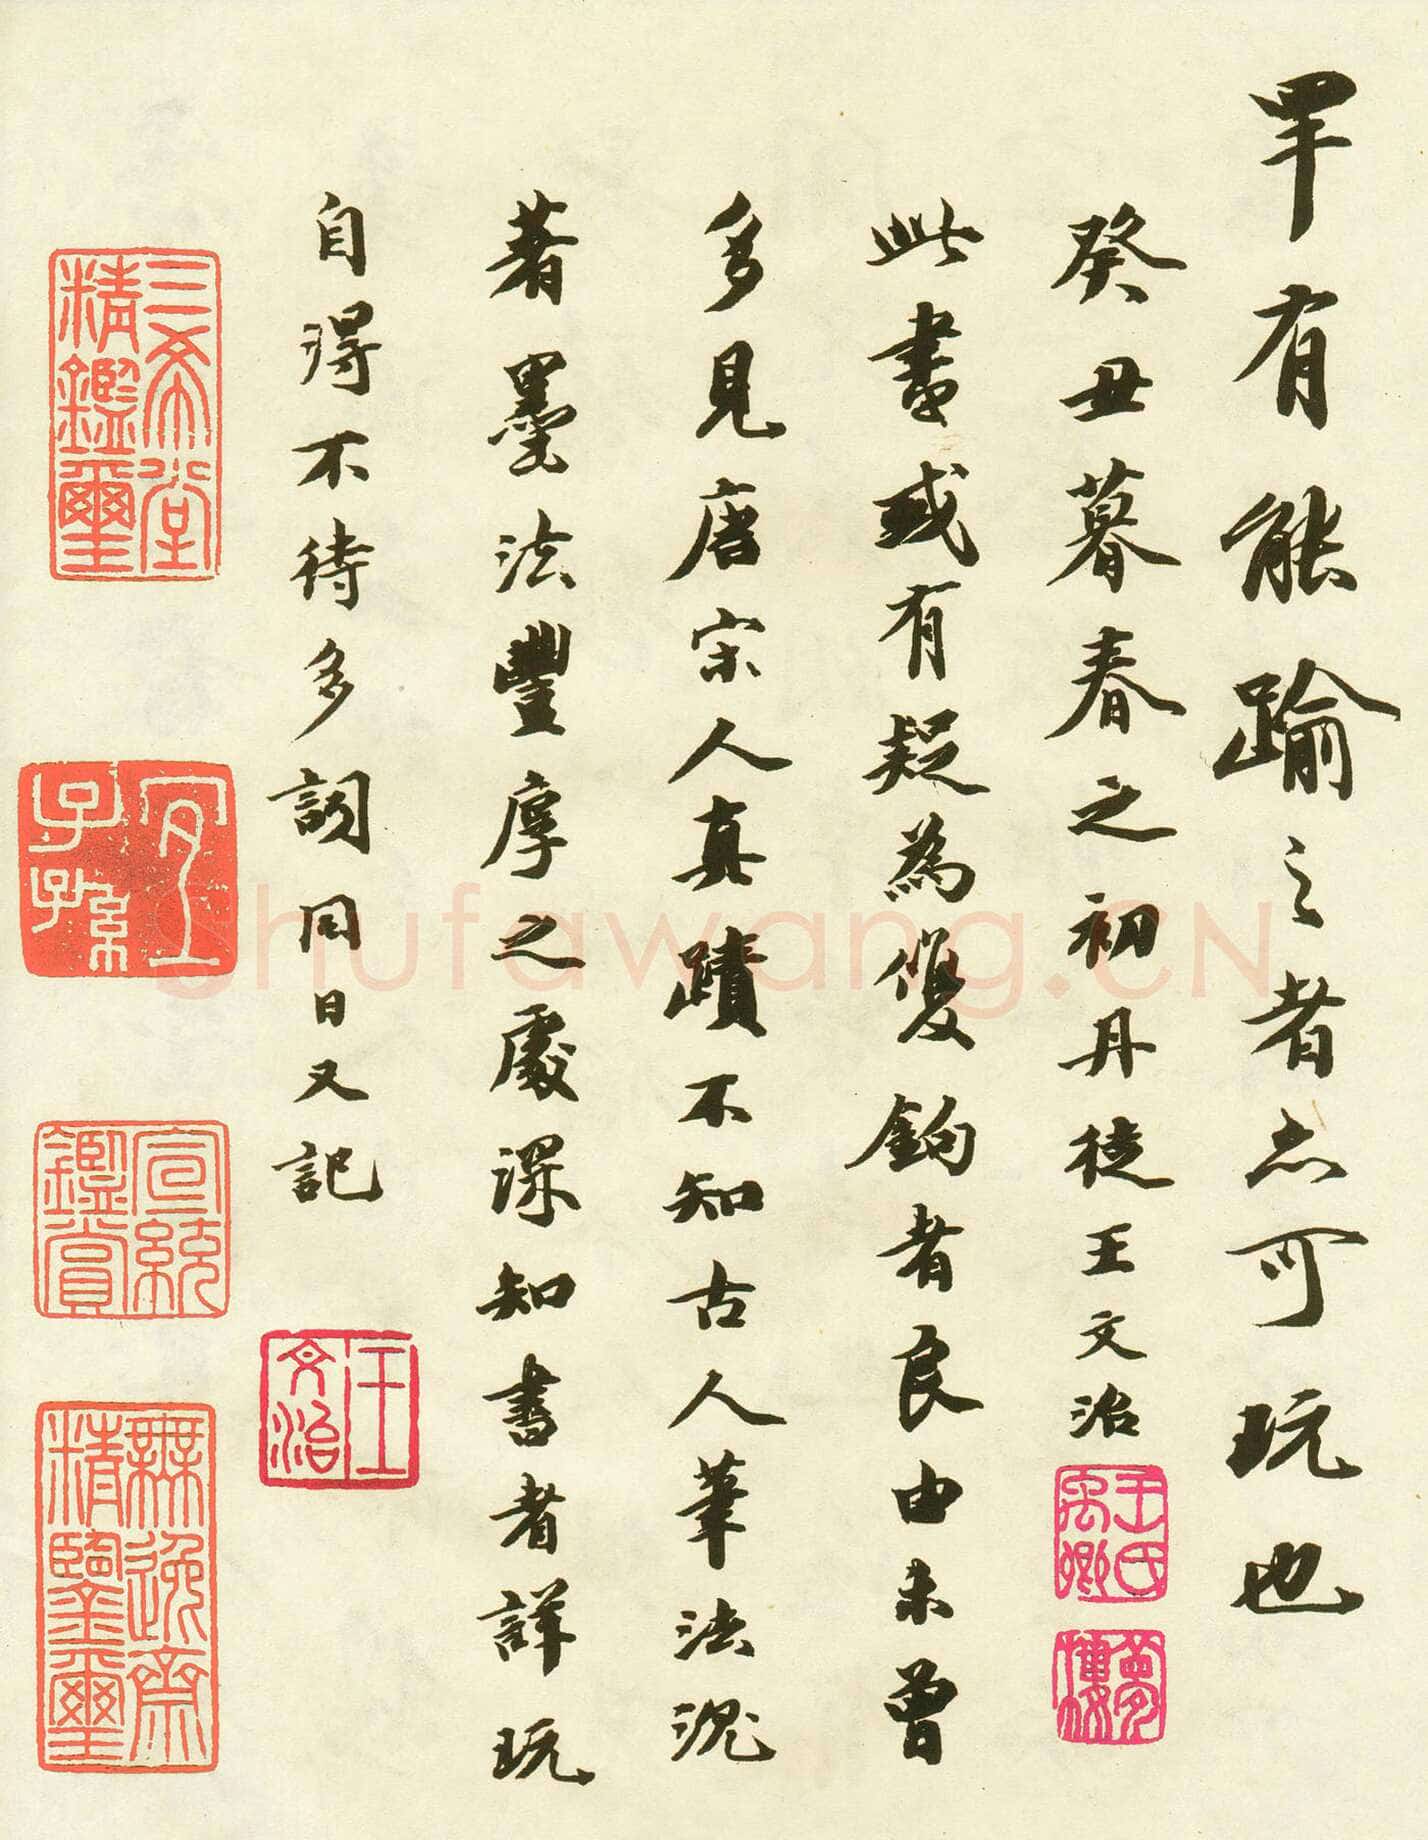 罕有能踰之者亦可玩也
癸丑暮春之初丹徒王文治
王氏禹卿
夢樓
此書或有疑為雙鉤者良由未曾
多見唐宋人真蹟不知古人筆法沉
著墨法豐厚之處深知書者詳玩
自得不待多詞同日又記
王文治
三希堂精鑑璽
宜子孫
宣統鑑賞
無逸齋精鑒璽
shufawang.CN